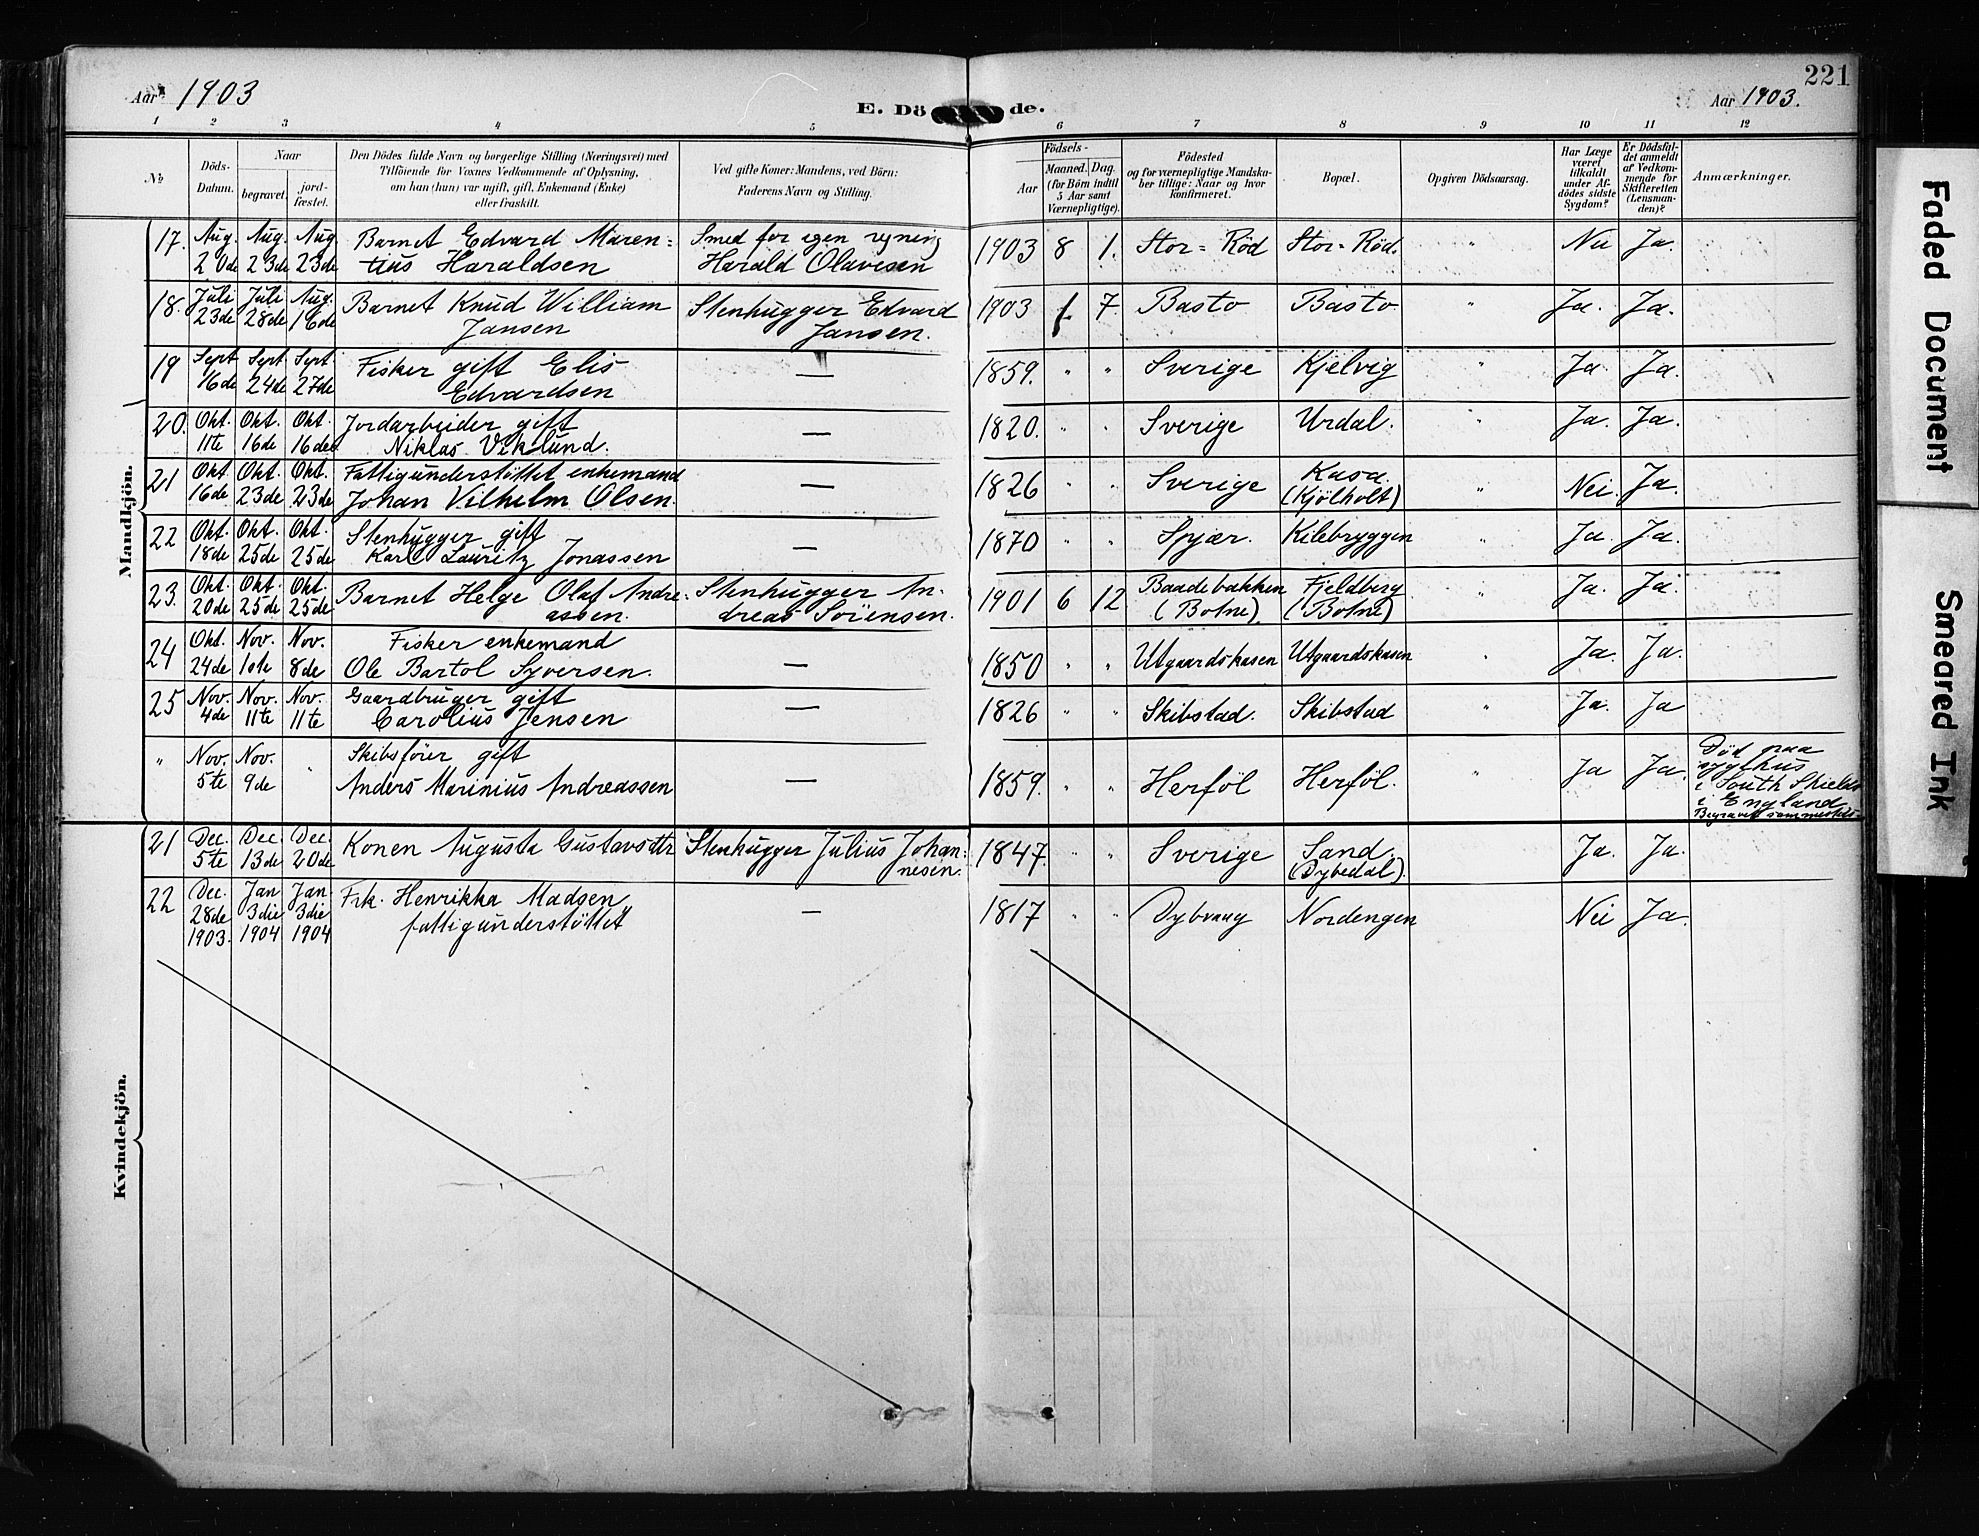 Aar 1903
E. Dö de.
Aar 1903.
221
1 2 3 4 5 6 7 8 9 10 11 12
№ Döds-Datum. Naar begravet. jord-fæstet.
Den Dödes fulde Navn og borgerlige Stilling (Næringsvei) med
Tilföiende for Voxnes Vedkommende af Oplysning,
om han (hun) var ugift, gift, Enkemand (Enke)
eller fraskilt.
Ved gifte Koner: Mandens, ved Börn:
Faderens Navn og Stilling.
Födsels-
Aar Maaned. Dag.
(for Börn indtil
5 Aar samt
Værnepligtige).
Födested
og for værnepligtige Mandska-
ber tillige: Naar og hvor
konfirmeret.
Bopæl.
Opgiven Dödsaarsag.
Har Læge
været
tilkaldt
under Af-
dödes sidste
Sygdom?
Er Dödsfal-
det anmeldt
af Vedkom-
mende for
Skifteretten
(Lensman-
den)?
Anmærkninger.
Mandkjön.
17. Aug. Aug. Aug Barnet Edvard Maren= Smed for egen regning 1903 8 1. Stor=Röd Stor=Röd. " Nei Ja.
20de 23de 23de tius Haraldsen Harald Olavesen
18. Juli Juli Aug. Barnet Knud William Stenhugger Edvard 1903 1. 7. Basto Basto " Ja. Ja.
23de 28de 16de Jansen Jansen.
19 Sept Sept. Sept. Fisker gift Elis — 1859. " " Sverige Kjelvig " Ja. Ja.
16de 24de 27de Edvardsen
20. Okt. Okt. Okt. Jordarbeider gift — 1820. " " Sverige Urdal. " Ja. Ja.
11te 16de 16de Niklas Viklund.
21 Okt Okt. Okt. Fattigunderstöttet enkemand — 1826 " " Sverige Kasa. " Nei. Ja.
16de 23de 23de Johan Vilhelm Olsen. (Kjölholt)
22 Okt. Okt. Okt. Stenhugger gift — 1870 " " Spjær. Kilebryggen " Ja. Ja.
18de 25de 25de Karl Lauritz Jonassen
23. Okt. Okt. Okt. Barnet Helge Olaf Andre- Stenhugger An- 1901 6 12 Baadebakken Fjeldberg " Ja. Ja.
20de 25de 25de assen. dreas Sörensen. (Botne) (Botne)
24 Okt. Nov. Nov. Fisker enkemand — 1850 " " Utgaardskasen Utgaardskasen " Ja. Ja.
24de 1ste 8de Ole Bartol Syversen.
25 Nov. Nov. Nov. Gaardbruger gift — 1826 " " Skibstad. Skibstad " Ja. Ja
4de 11te 11te Carolius Jensen
" Nov. Nov. " Skibsförer gift — 1859. " " Herföl Herföl. " Ja Ja.
5te 9de Anders Marinius Andreassen
Död paa
sygehus
i South Shields
i England
Begravet sammesteds.
Kvindekjön.
21 Dec. Dec Dec. Konen Augusta Gustavsdtr Stenhugger Julius Johan= 1847. " " Sverige Sand. Ja. Ja.
5te 13de 20de nesen. (Dybedal).
22 Dec. Jan Jan. Frk. Henrikka Madsen — 1817 " " Dybvaag Nordengen Nei Ja.
28de 3die 3die fattigunderstöttet
1903. 1904 1904
Faded Document
Smeared Ink